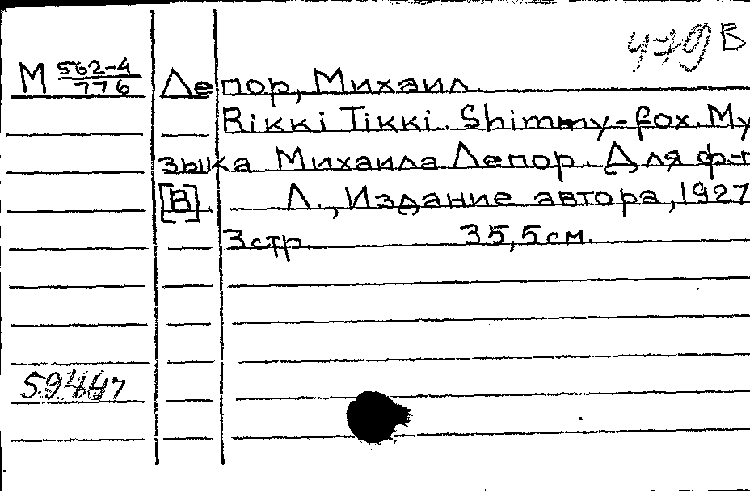 479 В
М 562-4/776 Лепор, Михаил.
Rikki Tikki. Shimmy-fox. Му
зыка Михаила Лепор. Для ф-п
[В]. Л., Издание автора, 1927
3стр. 35,5см.